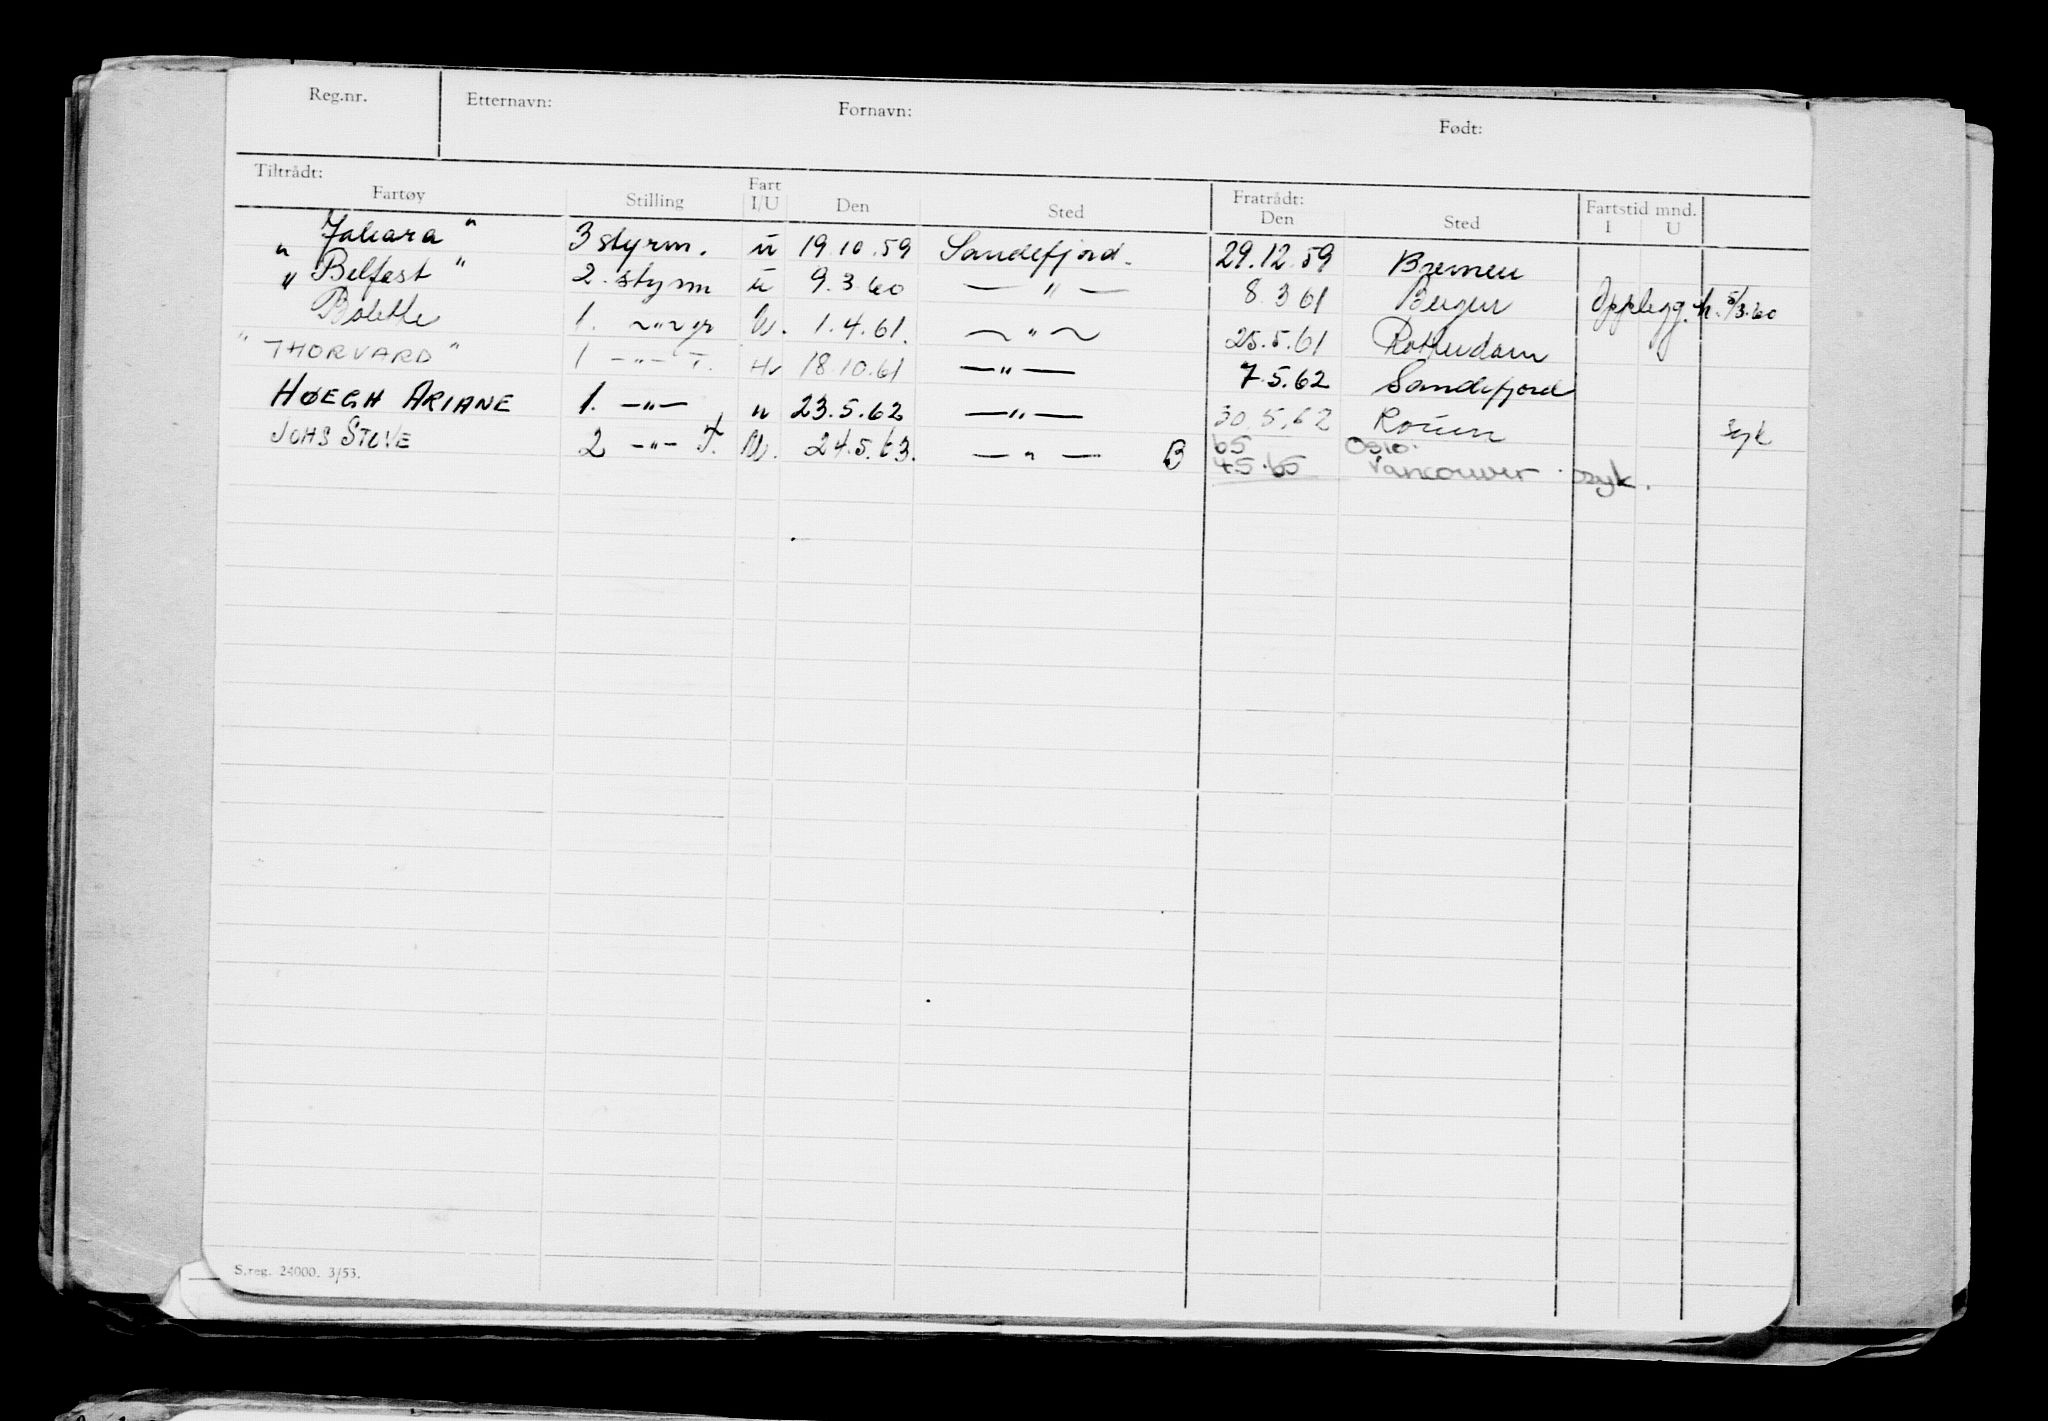 Reg.nr. Etternavn: Fornavn: Født:
Tiltrådt: Fartøy Stilling Fart I/U Den Sted Fratrådt: Den Sted Fartstid mnd. I U
" Jalna " 3 styrm. u 19.10.59 Sandefjord. 29.12.59 Bremen
" Belfast " 2. styrm u 9.3.60 — " — 8.3 61 Bergen Opplegg. 5/3.60
Bolette 1. ~"~ U. 1.4.61. ~ " ~ 25.5.61 Rotterdam
" THORVARD " 1 —"— T. U 18.10.61 —"— 7.5.62 Sandefjord
HØEGH ARIANE 1. —"— u 23.5.62 —"— 30.5.62 Rouen syk
JOHS STOVE 2 —"— T. U. 24.5.63. — " — B 65 Oslo.
4.5.65 Vancouver. syk.
S.reg. 24000. 3/53.